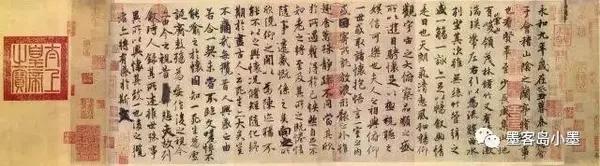 永和九年歲在癸丑暮春之初會
于會稽山陰之蘭亭脩禊事
也羣賢畢至少長咸集此地
有崇山峻領茂林脩竹又有清流激
湍暎帶左右引以為流觴曲水
列坐其次雖無絲竹管弦之
盛一觴一詠亦足以暢敘幽情
是日也天朗氣清惠風和暢仰
觀宇宙之大俯察品類之盛
所以遊目騁懷足以極視聽之
娛信可樂也夫人之相與俯仰
一世或取諸懷抱悟言一室之內
或因寄所託放浪形骸之外雖
趣舍萬殊靜躁不同當其欣
於所遇暫得於己怏然自足不
知老之將至及其所之既惓情
隨事遷感慨係之矣向之所
欣俛仰之閒以為陳迹猶不
能不以之興懷況脩短隨化終
期於盡古人云死生亦大矣豈
不痛哉每攬昔人興感之由
若合一契未嘗不臨文嗟悼不
能喻之於懷固知一死生為虛
誕齊彭殤為妄作後之視今
亦由今之視昔悲夫故列
敘時人錄其所述雖世殊事
異所以興懷其致一也後之攬
者亦將有感於斯文
太上皇帝之寶
墨客岛小墨